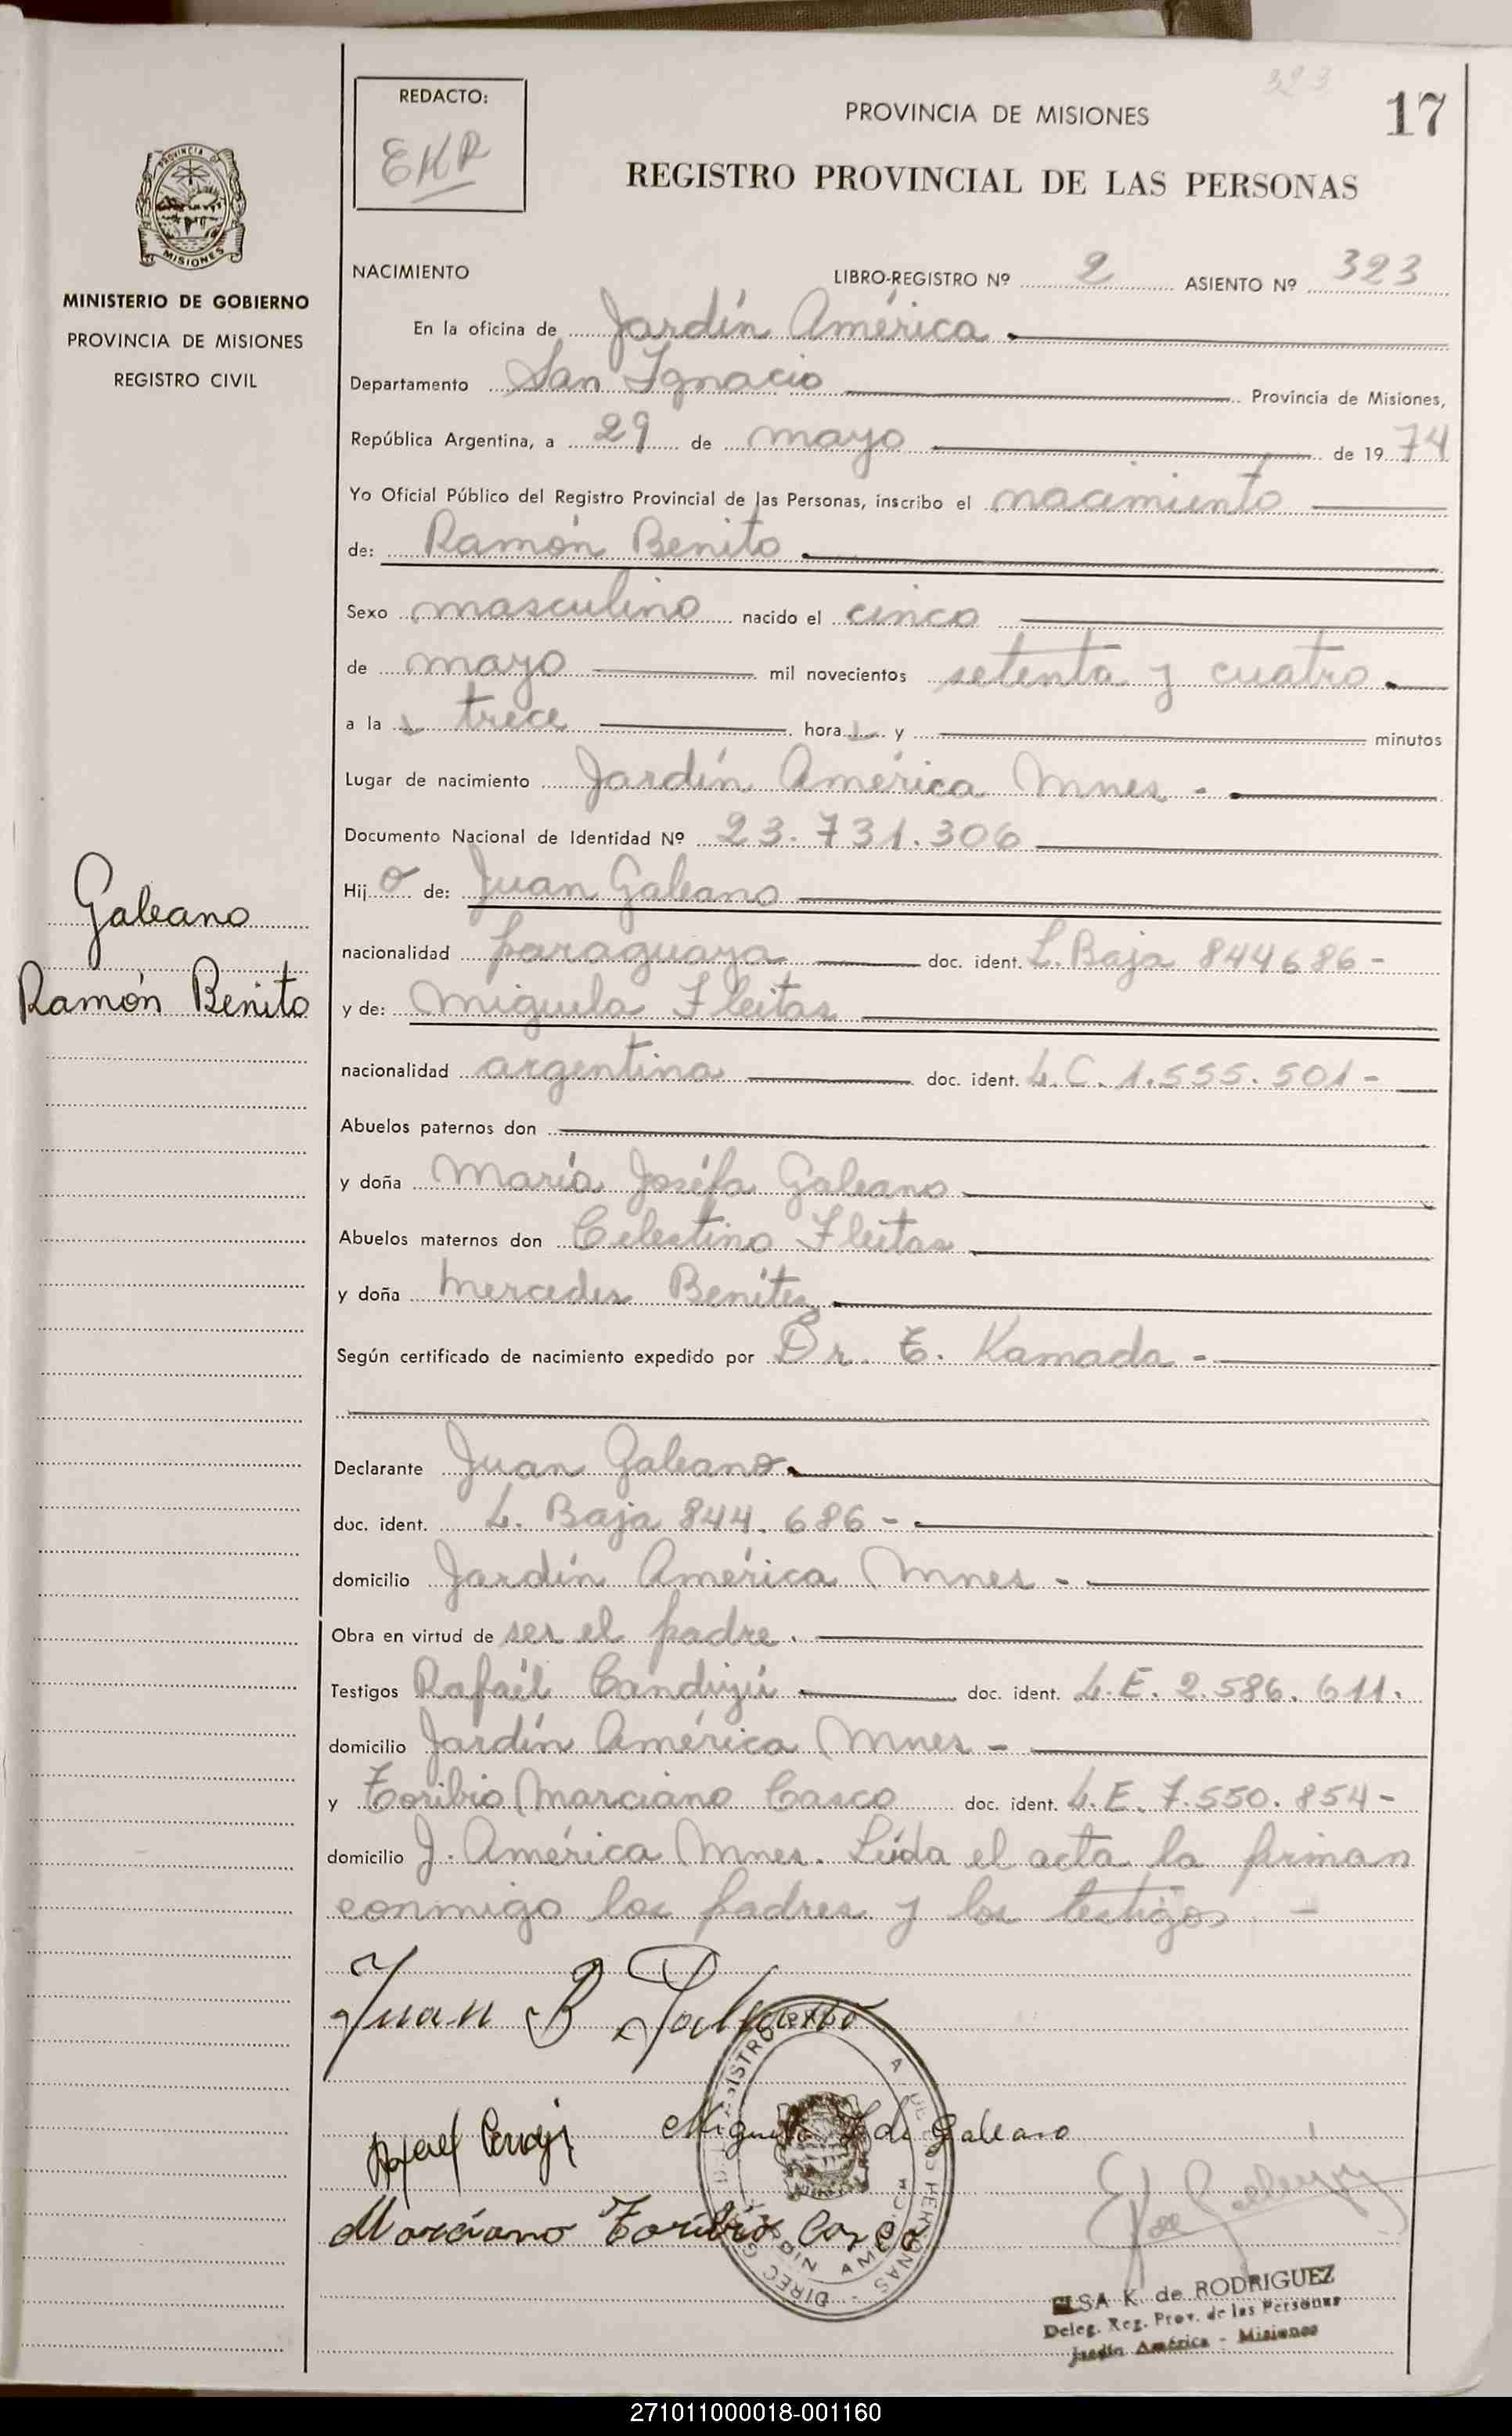 323
17
REDACTO:
EKR
PROVINCIA DE MISIONES
REGISTRO PROVINCIAL DE LAS PERSONAS
PROVINCIA DE
MISIONES
MINISTERIO DE GOBIERNO
PROVINCIA DE MISIONES
REGISTRO CIVIL
NACIMIENTO LIBRO-REGISTRO Nº 2 ASIENTO Nº 323
En la oficina de Jardín América
Departamento San Ignacio Provincia de Misiones,
República Argentina, a 29 de mayo de 1974
Yo Oficial Público del Registro Provincial de las Personas, inscribo el nacimiento
de: Ramón Benito
Sexo masculino nacido el cinco
de mayo mil novecientos setenta y cuatro
a las trece horas y minutos
Lugar de nacimiento Jardín América Mnes -
Documento Nacional de Identidad Nº 23.731.306
Galeano
Ramón Benito
Hijo de: Juan Galeano
nacionalidad paraguaya doc. ident. L. Baja 844686 -
y de: Miguela Fleitas
nacionalidad argentina doc. ident. L.C. 1.555.501 -
Abuelos paternos don
y doña María Joséfa Galeano
Abuelos maternos don Celestino Fleitas
y doña Mercedes Benítez
Según certificado de nacimiento expedido por Dr. E. Kamada -
Declarante Juan Galeano
doc. ident. L. Baja 844.686 -
domicilio Jardín América Mnes -
Obra en virtud de ser el padre.
Testigos Rafaél doc. ident. L.E. 2.586.611.
domicilio Jardín América Mnes -
y Toribio Marciano Casco doc. ident. L.E. 7.550.854 -
domicilio J. América Mnes. Leída el acta la firman
conmigo los padres y los testigos. -
Juan B Galeano
Miguela F de Galeano
Rafael
Marciano Toribio Casco
JARDIN AMERICA
ELSA K. de RODRIGUEZ
Deleg. Reg. Prov. de las Personas
Jardín América - Misiones
271011000018-001160